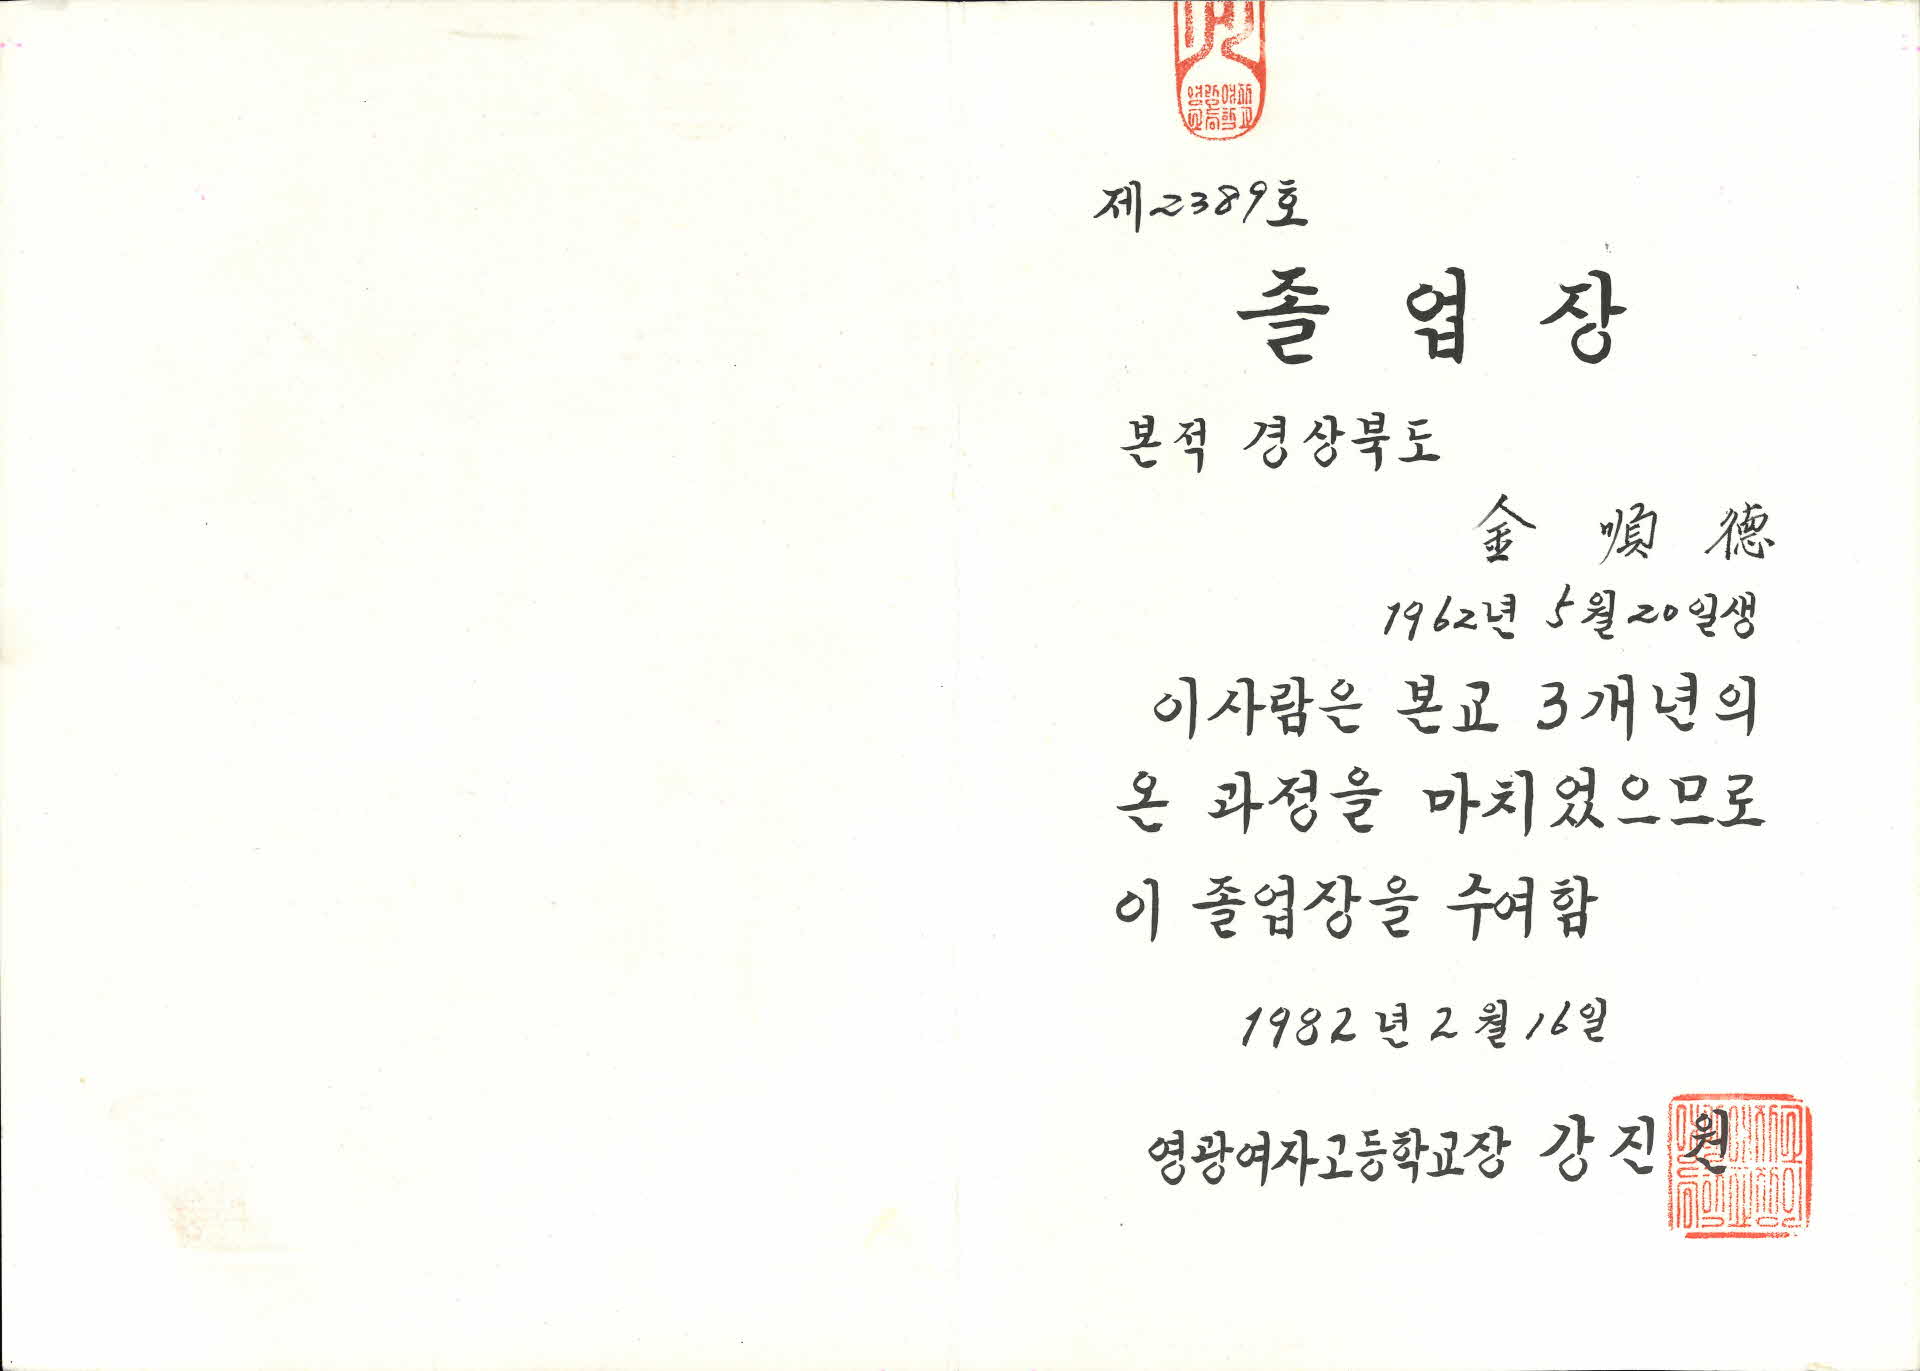 영광여자
고등학교
제2389호
졸 업 장
본적 경상북도
金 順 德
1962년 5월 20일생
이사람은 본교 3개년의
온 과정을 마치었으므로
이 졸업장을 수여함
1982년 2월 16일
영광여자고등학교장 강진원